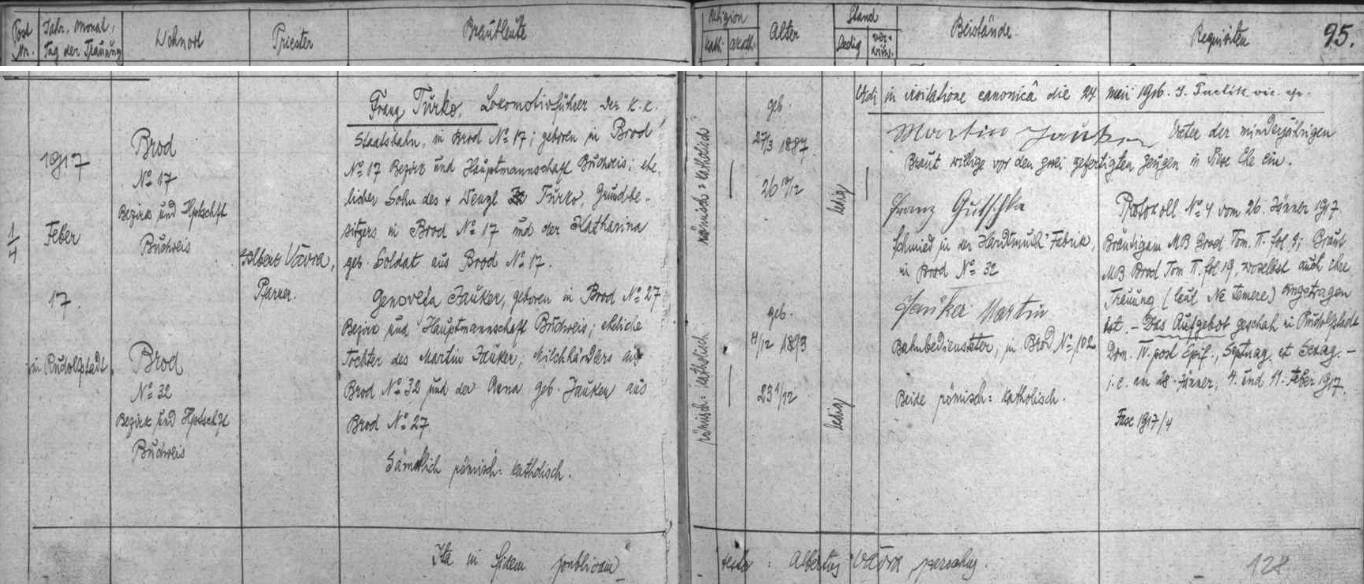 Post Nr.
Jahr, Monat, Tag der Trauung
Wohnort
Priester
Brautleute
Religion
kath.
akath.
Alter
Stand
ledig
Beistände
Requisiten
95.
1917
17.
Feber
in Rudolfstadt
Brod
No 17
Bezirk und Hptschft
Budweis
Brod
No 32
Bezirk und Hptschft
Budweis
Albert Vávra,
Pfarrer.
Franz Turko, Lokomotivführer der k. k.
Staatsbahn, in Brod No 17; geboren in Brod
No 17 Bezirk und Hauptmannschaft Budweis; ehe-
licher Sohn des + Wenzl Turko, Grundbe-
sitzers in Brod No 17 und der Katharina
geb. Soldat aus Brod No 17.
Genovefa Jauker, geboren in Brod No 27
Bezirk und Hauptmannschaft Budweis; eheliche
Tochter des Martin Jauker, Milchhändlers aus
Brod No 32 und der Anna geb. Jauker aus
Brod No 27.
Sämtlich römisch: katholisch.
römisch: katholisch
römisch: katholisch
geb.
27/3 1887
26
geb.
1893
23
ledig
ledig
Vidi in visitatione canonicâ die 24 maii 1926.
Martin Jauker Vater der minderjährigen
Braut willige vor den zwei gefertigten Zeugen in diese Ehe ein.
Franz Gutschka
Schmied in der Hardtmuth Fabrik,
in Brod No 32
Jauker Martin
Bahnbediensteter, in Brod No 102
Beide römisch: katholisch.
Protokoll No 4 vom 26. Jänner 1917
Bräutigam MB Brod Tom. II. fol 9; Braut
MB Brod Tom II. fol 19, woselbst auch ihre
Trauung (laut Ne temere) eingetragen
ist. – Das Aufgebot geschah in Rudolfstadt
Dom. IV. post Epif., Septuag. et Sexag. –
i. e. am 28. Jänner, 4. und 11. Feber 1917.
Fasc 1917/4
Ita in fidem publicam
testor: Albertus Vávra parochus.
128